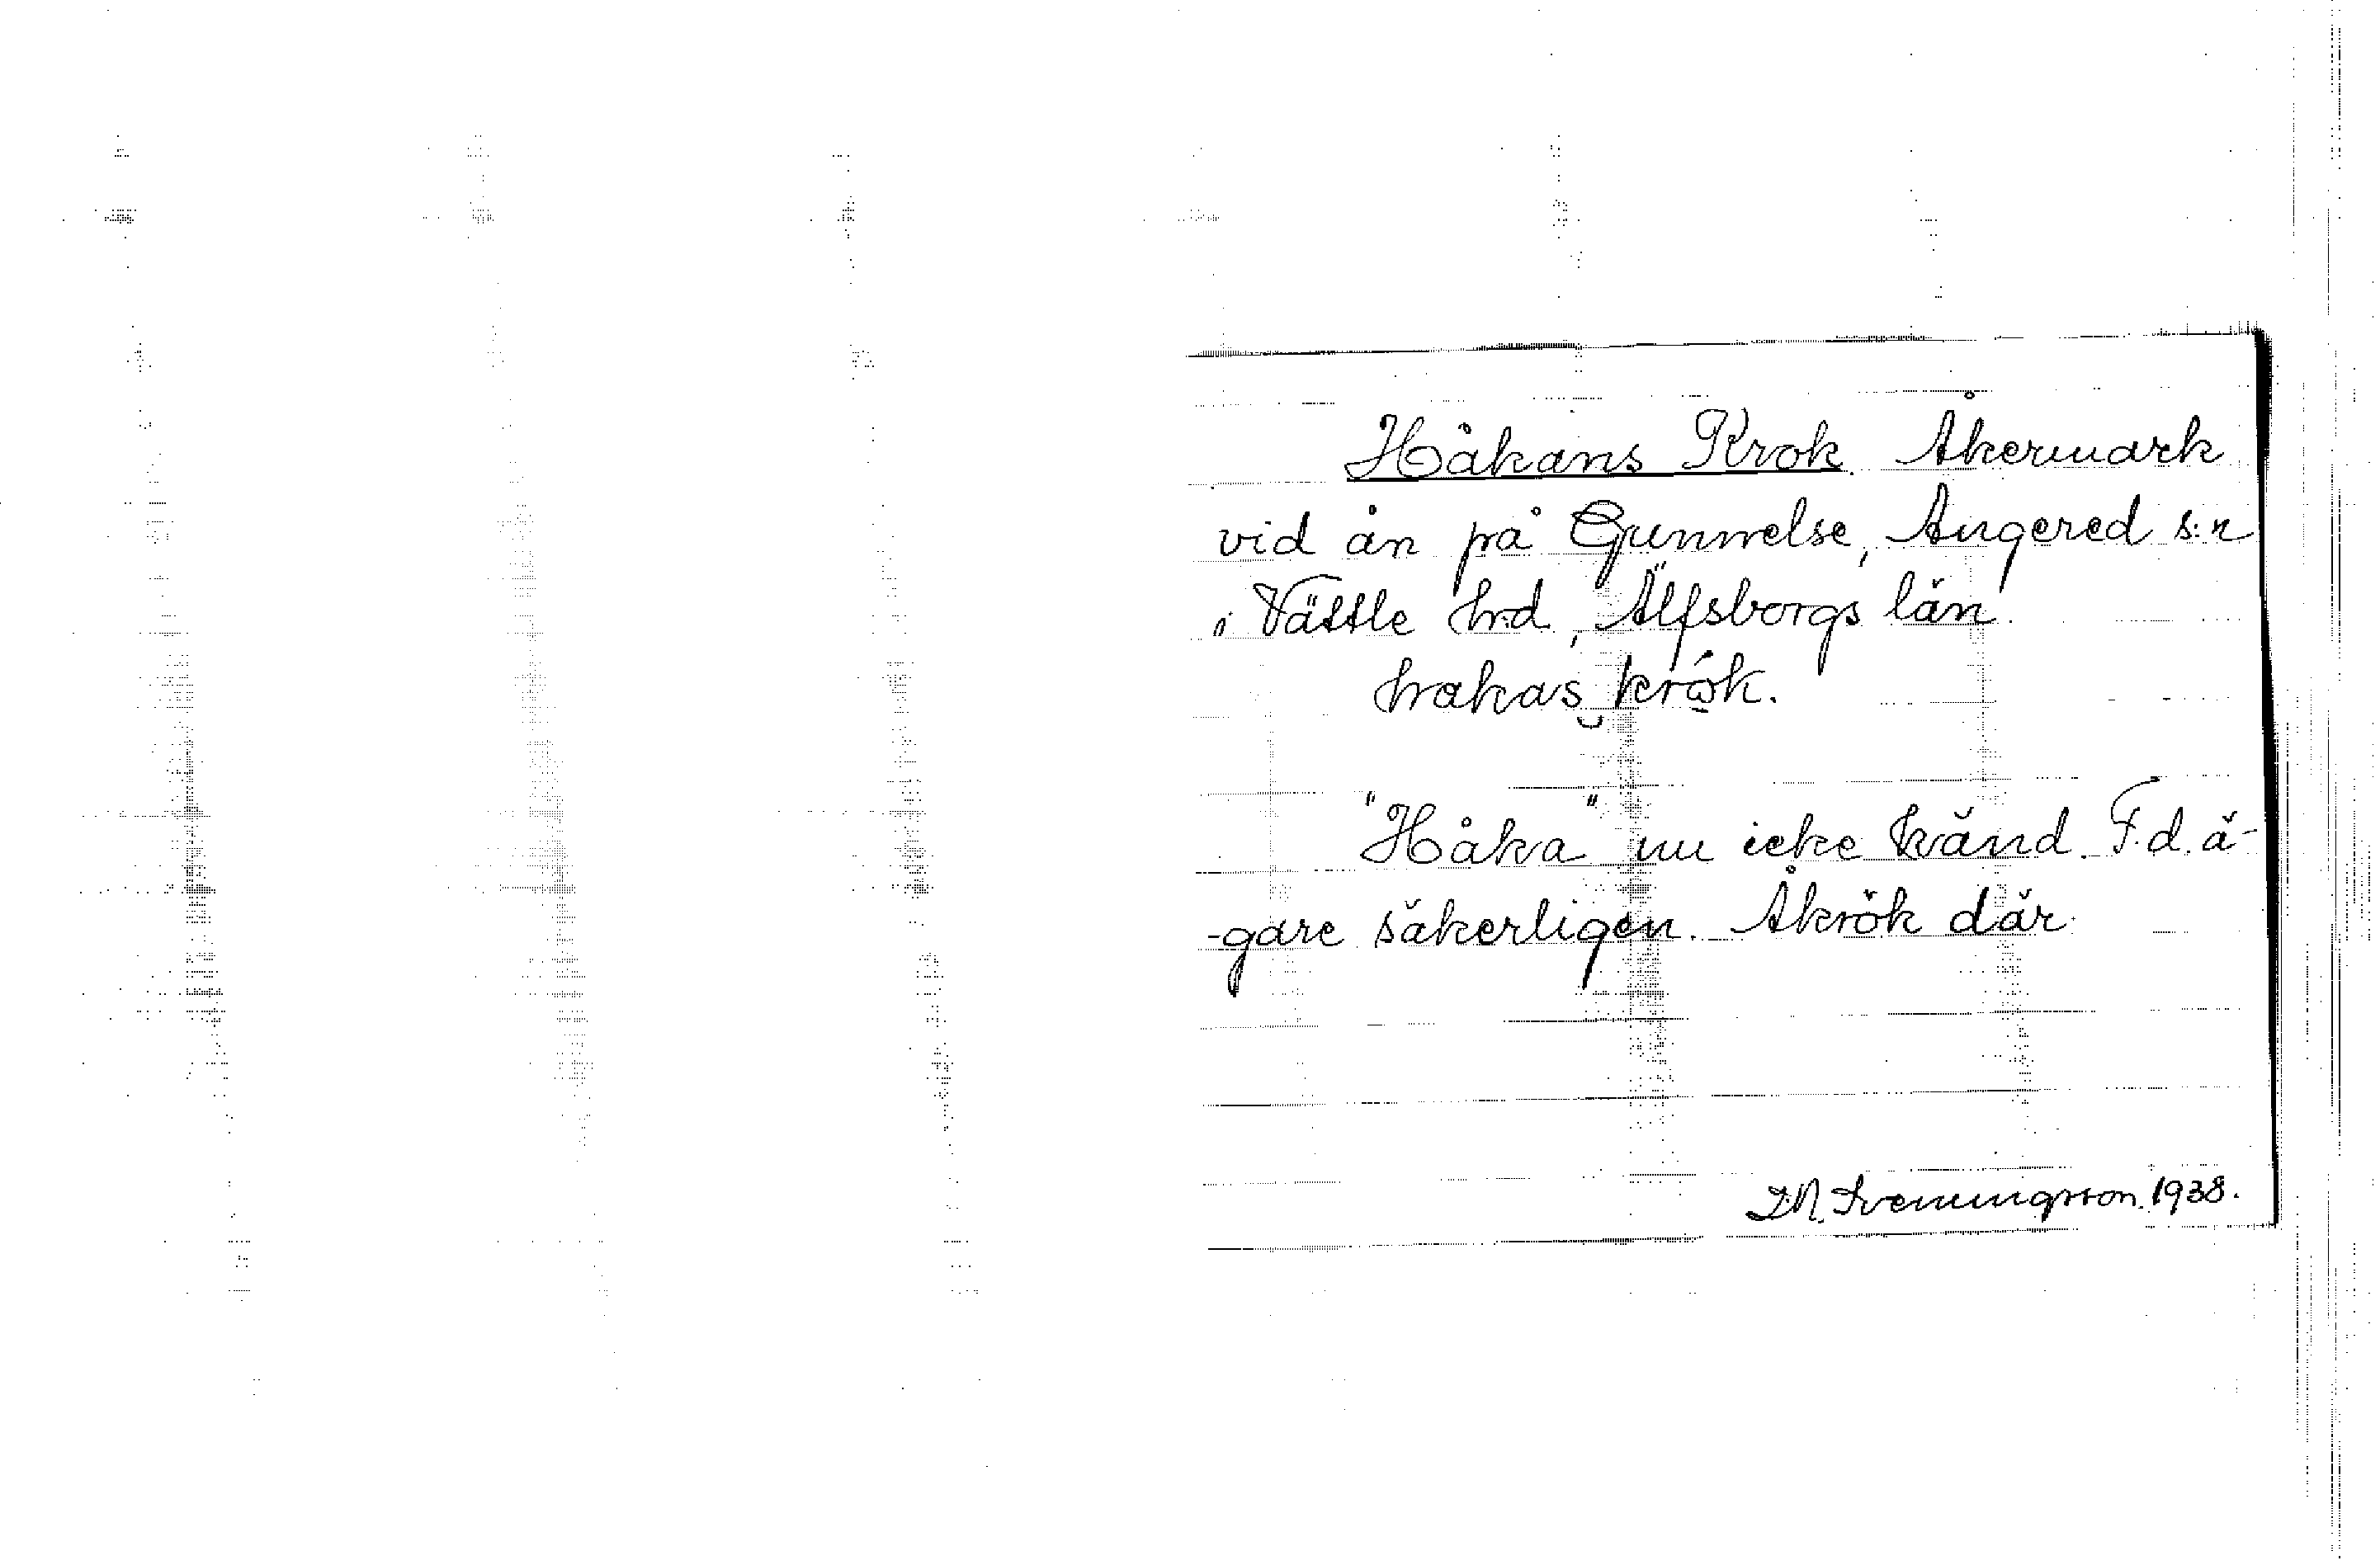 Håkans Krok. Åkermark
vid ån på Gunnnelse, Angered s:n
i Vättle h:d, Älfsborgs län.
hakas krók.
"Håka" nu icke känd. F.d. ä-
-gare säkerligen. Åkrök där.
Sveningsson. 1938.